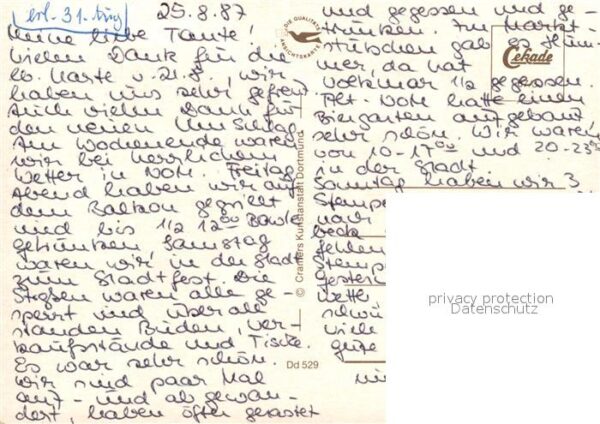 erl. 31. Aug
25.8.87
Meine liebe Tante!
Vielen Dank für die
lb. Karte v. 21.8., wir
haben uns sehr gefreut.
Auch vielen Dank für
den neuen Umschlag.
Am Wochenende waren
wir bei herrlichem
Wetter in Nott. Freitag
Abend haben wir auf
dem Balkon gegrillt
und bis 1/2 12 00 Bowle
getrunken. Samstag
waren wir in der Stadt
zum Stadtfest. Die
Straßen waren alle ge-
sperrt und überall
standen Buden, Ver-
kaufsstände und Tische.
Es war sehr schön.
Wir sind paar Mal
auf- und ab gewan-
dert, haben öfter gerastet
und gegessen und ge-
trunken. Im Markt-
stübchen gab es Hüh-
ner, da hat
Volkmar 1/2 gegessen.
Alt-Nott hatte einen
Biergarten aufgebaut
sehr schön. Wir waren
von 10-17 00 und 20-23 00
in der Stadt
Sonntag haben wir 3
Stempe
nach
beck
fehlen
Stemp
Gester
Wette
schwü
viele
gute
DIE QUALITÄTS
ANSICHTSKARTE
Cekade
© Cramers Kunstanstalt Dortmund
Dd 529
privacy protection
Datenschutz